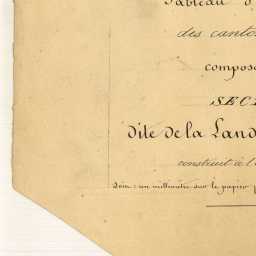 Tableau d
des canto
compos
SEC
dite de la Land
construit à l
un millimètre sur le papier